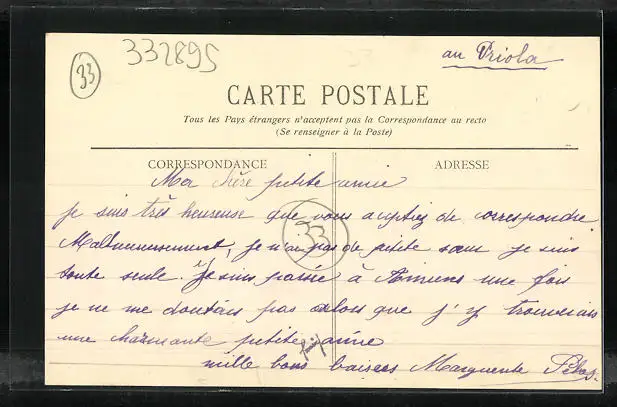 332895
33
au Priola
CARTE POSTALE
Tous les Pays étrangers n'acceptent pas la Correspondance au recto
(Se renseigner à la Poste)
CORRESPONDANCE
ADRESSE
Ma chère petite amie
je suis très heureuse que vous acceptiez de correspondre.
Malheureusement, je n'ai pas de petite sœur je suis
33
toute seule. Je suis passée à Amiens une fois
je ne me doutais pas alors que j'y trouverais
une charmante petite amie
mille bons baisers Marguerite